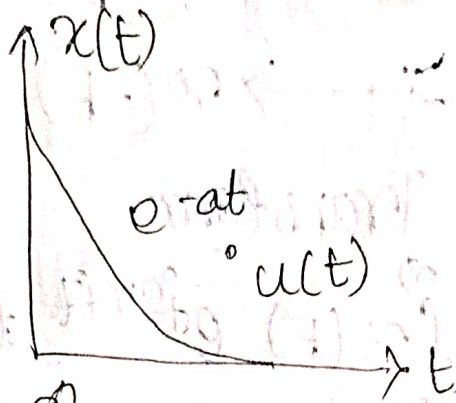 x(t)
e-at
u(t)
t